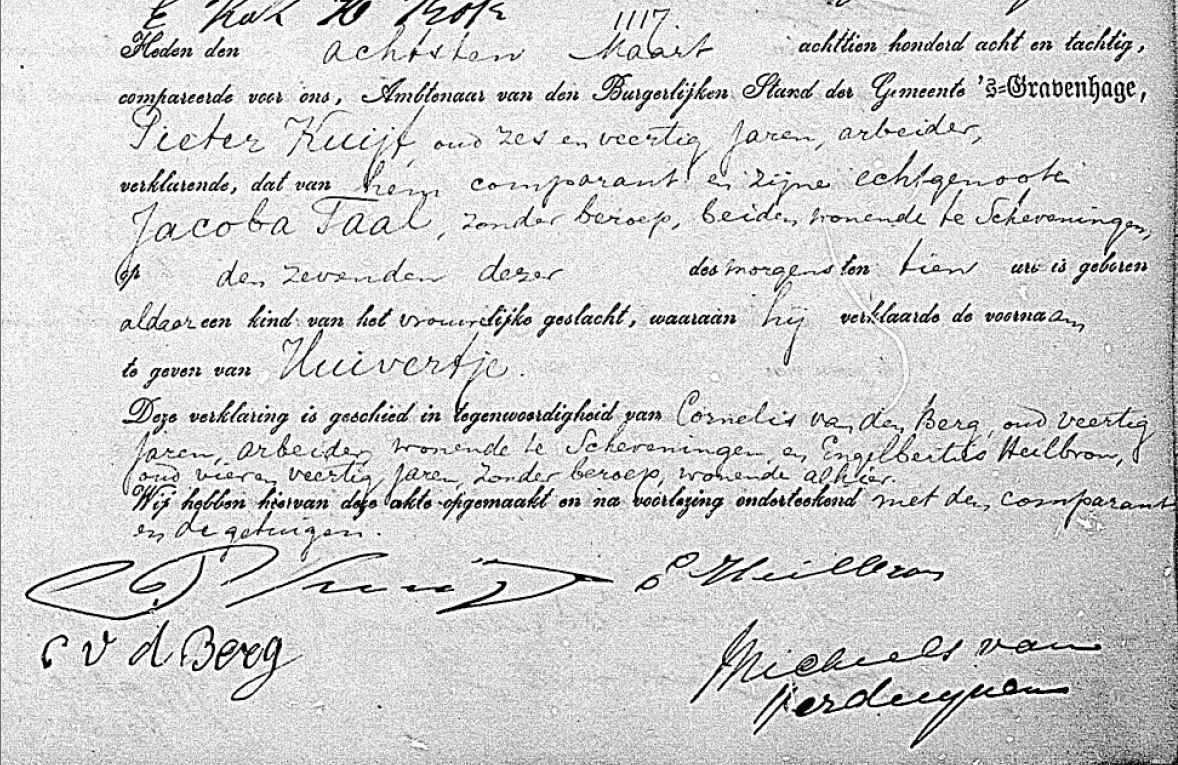 E Kok H Kok
1117.
Heden den achtsten Maart achttien honderd acht en tachtig,
compareerde voor ons, Ambtenaar van den Burgerlijken Stand der Gemeente 's=Gravenhage,
Pieter Kuijt, oud zes en veertig jaren, arbeider,
verklarende, dat van hem comparant en zijne echtgenoote
Jacoba Taal, zonder beroep, beiden wonende te Scheveningen,
op den zevenden dezer des morgens ten tien ure is geboren
aldaar een kind van het vrouwelijke geslacht, waaraan hij verklaarde de voornaam
te geven van Huivertje.
Deze verklaring is geschied in tegenwoordigheid van Cornelis van den Berg, oud veertig
jaren, arbeider, wonende te Scheveningen, en Engelbertus Heilbron,
oud vier en veertig jaren, zonder beroep, wonende alhier.
Wij hebben hiervan deze akte opgemaakt en na voorlezing onderteekend met den comparant
en de getuigen.
P Kuijt E Heilbron
C v d Berg
Michiels van
Kerduynen